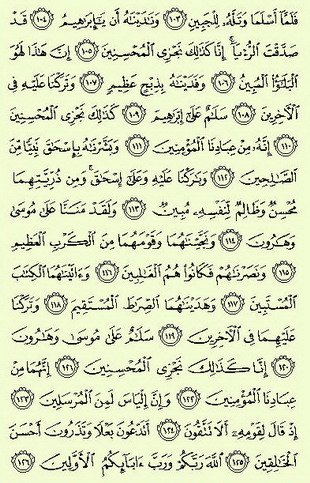 فَلَمَّآ أَسْلَمَا وَتَلَّهُۥ لِلْجَبِينِ ١٠٣ وَنَٰدَيْنَٰهُ أَن يَٰٓإِبْرَٰهِيمُ ١٠٤ قَدْ
صَدَّقْتَ ٱلرُّءْيَآ إِنَّا كَذَٰلِكَ نَجْزِى ٱلْمُحْسِنِينَ ١٠٥ إِنَّ هَٰذَا لَهُوَ
ٱلْبَلَٰٓؤُا۟ ٱلْمُبِينُ ١٠٦ وَفَدَيْنَٰهُ بِذِبْحٍ عَظِيمٍ ١٠٧ وَتَرَكْنَا عَلَيْهِ فِى
ٱلْءَاخِرِينَ ١٠٨ سَلَٰمٌ عَلَىٰٓ إِبْرَٰهِيمَ ١٠٩ كَذَٰلِكَ نَجْزِى ٱلْمُحْسِنِينَ
١١٠ إِنَّهُۥ مِنْ عِبَادِنَا ٱلْمُؤْمِنِينَ ١١١ وَبَشَّرْنَٰهُ بِإِسْحَٰقَ نَبِيًّا مِّنَ
ٱلصَّٰلِحِينَ ١١٢ وَبَٰرَكْنَا عَلَيْهِ وَعَلَىٰٓ إِسْحَٰقَ وَمِن ذُرِّيَّتِهِمَا
مُحْسِنٌ وَظَالِمٌ لِّنَفْسِهِۦ مُبِينٌ ١١٣ وَلَقَدْ مَنَنَّا عَلَىٰ مُوسَىٰ
وَهَٰرُونَ ١١٤ وَنَجَّيْنَٰهُمَا وَقَوْمَهُمَا مِنَ ٱلْكَرْبِ ٱلْعَظِيمِ
١١٥ وَنَصَرْنَٰهُمْ فَكَانُوا۟ هُمُ ٱلْغَٰلِبِينَ ١١٦ وَءَاتَيْنَٰهُمَا ٱلْكِتَٰبَ
ٱلْمُسْتَبِينَ ١١٧ وَهَدَيْنَٰهُمَا ٱلصِّرَٰطَ ٱلْمُسْتَقِيمَ ١١٨ وَتَرَكْنَا
عَلَيْهِمَا فِى ٱلْءَاخِرِينَ ١١٩ سَلَٰمٌ عَلَىٰ مُوسَىٰ وَهَٰرُونَ
١٢٠ إِنَّا كَذَٰلِكَ نَجْزِى ٱلْمُحْسِنِينَ ١٢١ إِنَّهُمَا مِنْ
عِبَادِنَا ٱلْمُؤْمِنِينَ ١٢٢ وَإِنَّ إِلْيَاسَ لَمِنَ ٱلْمُرْسَلِينَ ١٢٣
إِذْ قَالَ لِقَوْمِهِۦٓ أَلَا تَتَّقُونَ ١٢٤ أَتَدْعُونَ بَعْلًا وَتَذَرُونَ أَحْسَنَ
ٱلْخَٰلِقِينَ ١٢٥ ٱللَّهَ رَبَّكُمْ وَرَبَّ ءَابَآئِكُمُ ٱلْأَوَّلِينَ ١٢٦